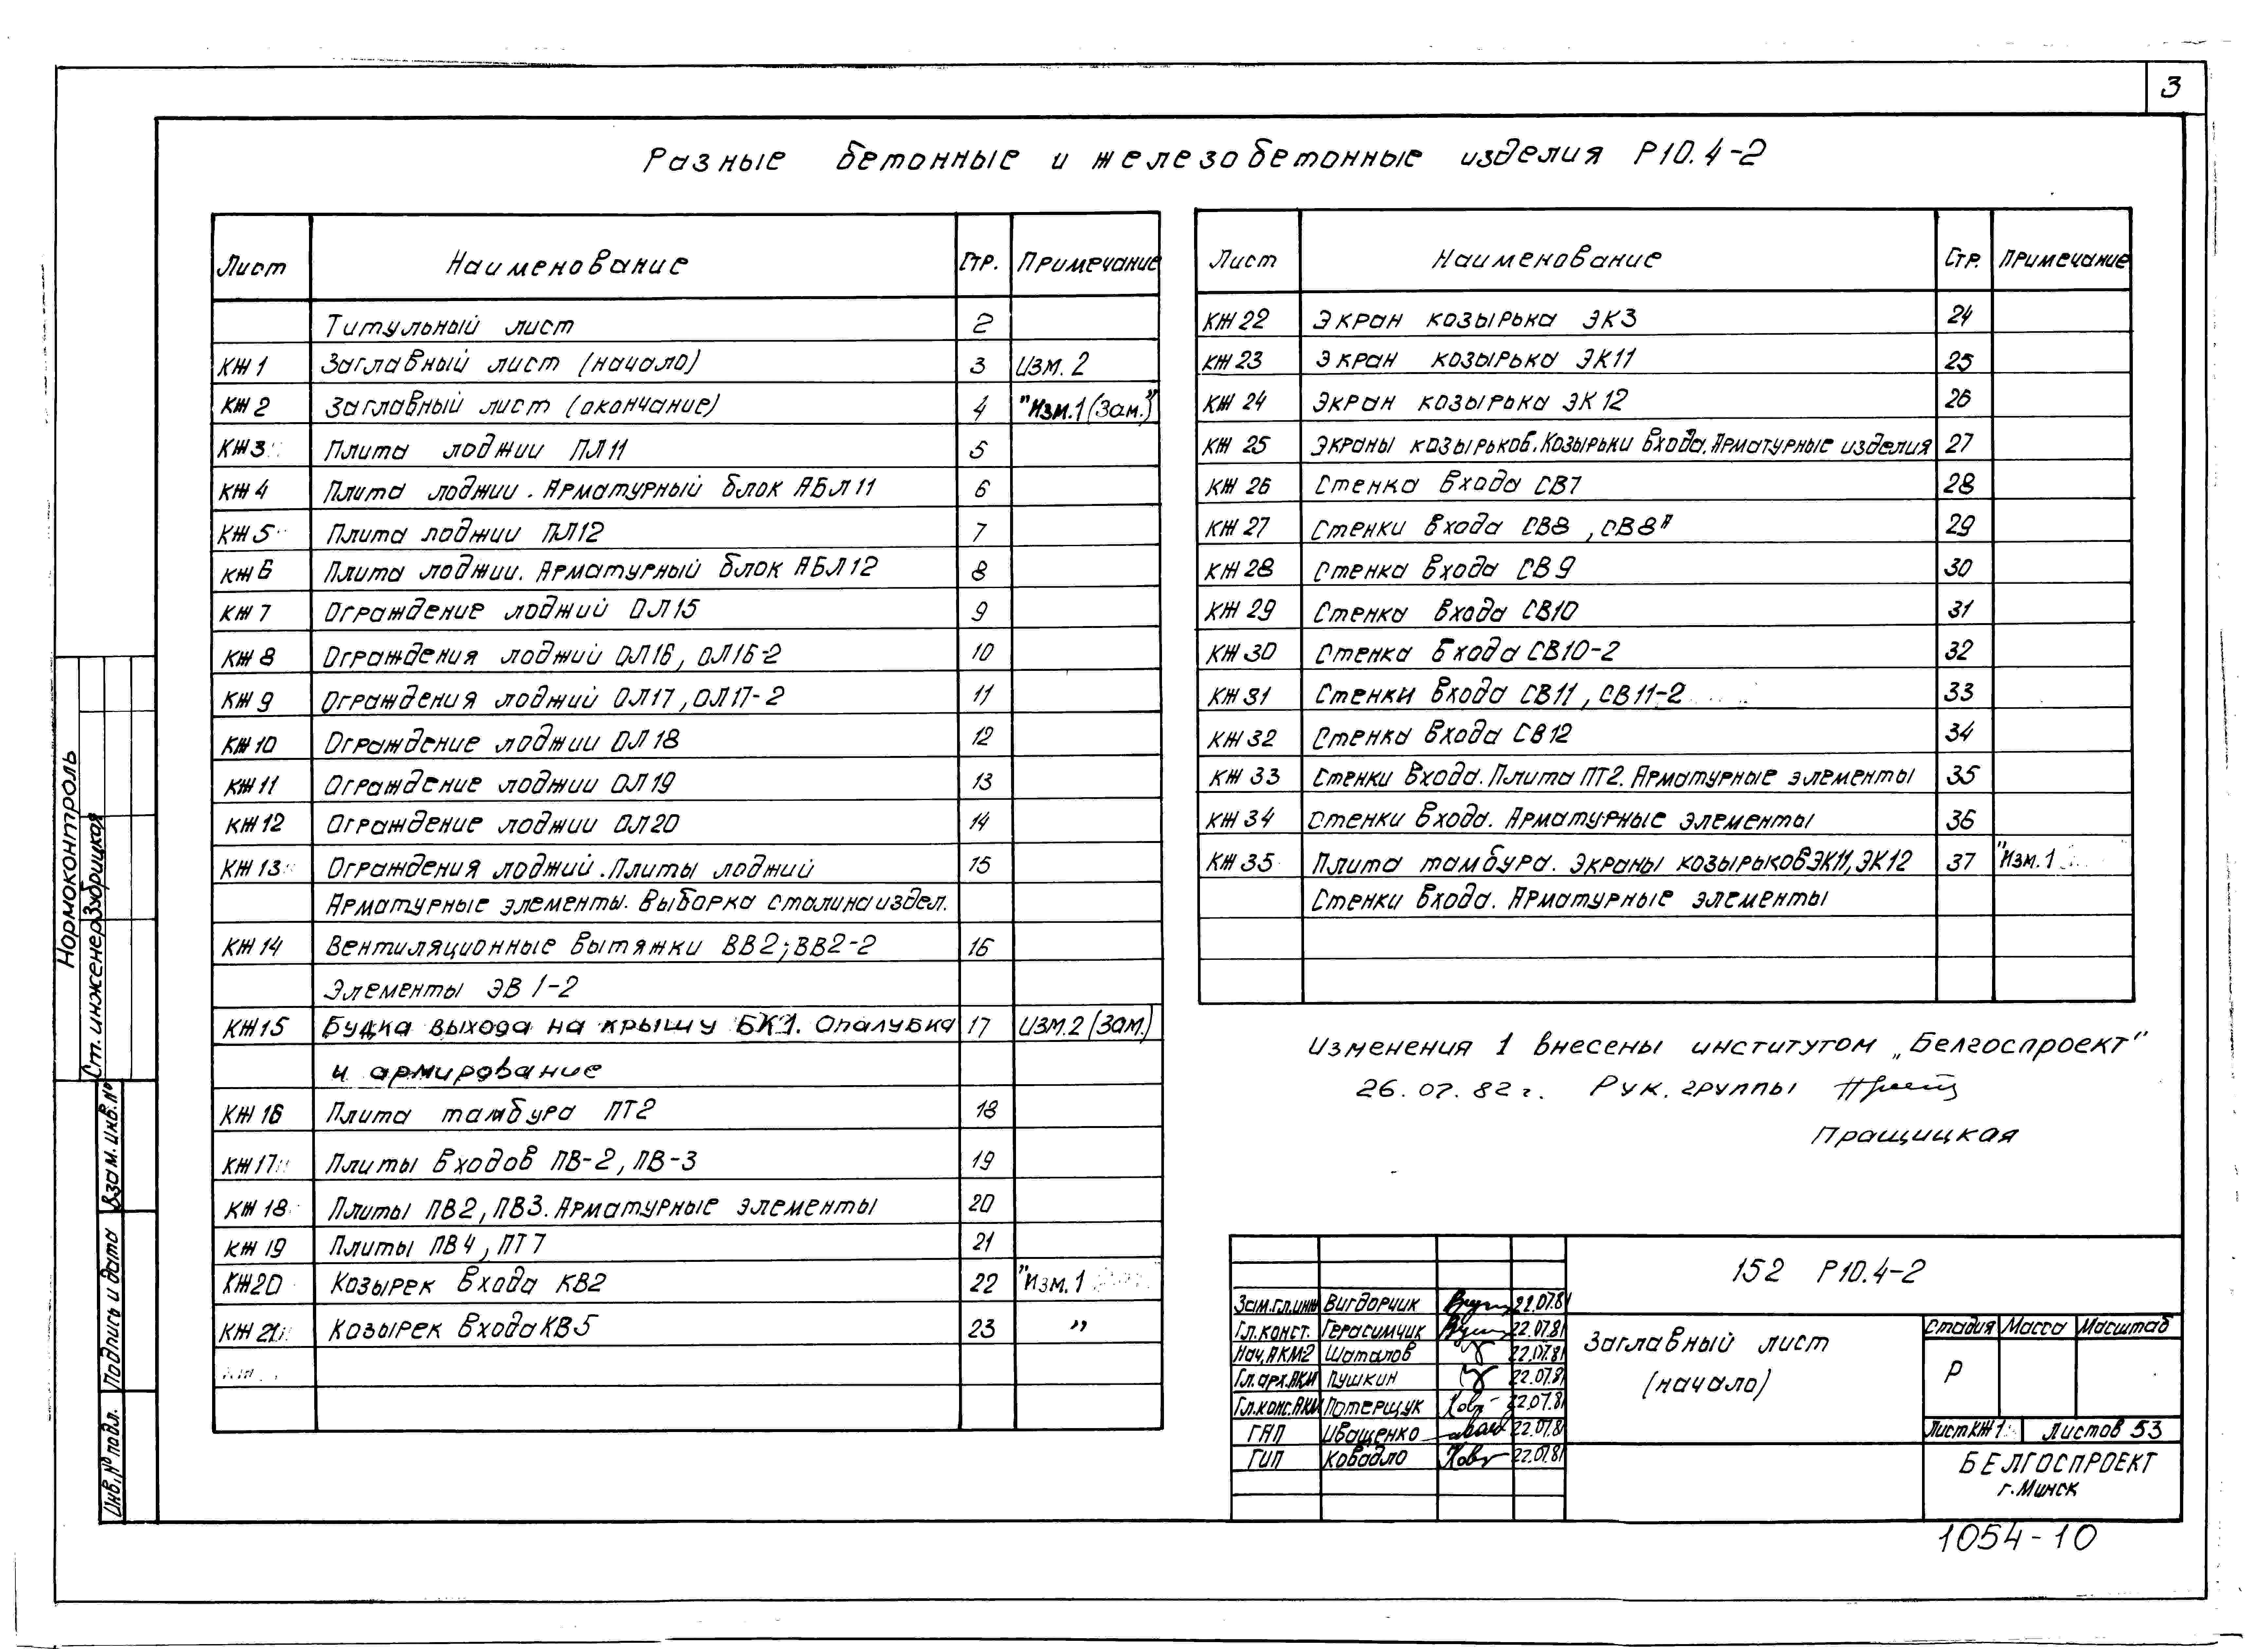 3
Разные бетонные и железобетонные изделия Р10.4-2
Лист Наименование Стр. Примечание
Титульный лист 2
КЖ 1 Заглавный лист (начало) 3 Изм. 2
КЖ 2 Заглавный лист (окончание) 4 "Изм.1 (Зам.)"
КЖ 3 Плита лоджии ПЛ11 5
КЖ 4 Плита лоджии. Арматурный блок АБЛ11 6
КЖ 5 Плита лоджии ПЛ12 7
КЖ 6 Плита лоджии. Арматурный блок АБЛ12 8
КЖ 7 Ограждение лоджий ОЛ15 9
КЖ 8 Ограждения лоджий ОЛ16, ОЛ16-2 10
КЖ 9 Ограждения лоджий ОЛ17, ОЛ17-2 11
КЖ 10 Ограждение лоджии ОЛ18 12
КЖ 11 Ограждение лоджии ОЛ19 13
КЖ 12 Ограждение лоджии ОЛ20 14
КЖ 13 Ограждения лоджий. Плиты лоджий 15
Арматурные элементы. Выборка стали на издел.
КЖ 14 Вентиляционные вытяжки ВВ2; ВВ2-2 16
Элементы ЭВ 1-2
КЖ 15 Будка выхода на крышу БК1. Опалубка 17 Изм.2 (Зам.)
и армирование
КЖ 16 Плита тамбура ПТ2 18
КЖ 17 Плиты входов ПВ-2, ПВ-3 19
КЖ 18 Плиты ПВ2, ПВ3. Арматурные элементы 20
КЖ 19 Плиты ПВ4, ПТ7 21
КЖ 20 Козырек входа КВ2 22 "Изм.1
КЖ 21 Козырек входа КВ5 23 "
Лист Наименование Стр. Примечание
КЖ 22 Экран козырька ЭК3 24
КЖ 23 Экран козырька ЭК11 25
КЖ 24 Экран козырька ЭК12 26
КЖ 25 Экраны козырьков. Козырьки входа. Арматурные изделия 27
КЖ 26 Стенка входа СВ7 28
КЖ 27 Стенки входа СВ8, СВ8ᴬ 29
КЖ 28 Стенка входа СВ9 30
КЖ 29 Стенка входа СВ10 31
КЖ 30 Стенка входа СВ10-2 32
КЖ 31 Стенки входа СВ11, СВ11-2 33
КЖ 32 Стенка входа СВ12 34
КЖ 33 Стенки входа. Плита ПТ2. Арматурные элементы 35
КЖ 34 Стенки входа. Арматурные элементы 36
КЖ 35 Плита тамбура. Экраны козырьков ЭК11, ЭК12 37 "Изм.1
Стенки входа. Арматурные элементы
Изменения 1 внесены институтом „Белгоспроект"
26.07.82 г. Рук. группы
Пращицкая
152 Р10.4-2
Зам.гл.инж Вигдорчик 22.07.81
Гл.конст. Герасимчик 22.07.81
Нач.АКМ-2 Шаталов 22.07.81
Гл.арх.АКМ Пушкин 22.07.81
Гл.конс.АКМ Потерщук 22.07.81
ГАП Иващенко 22.07.81
ГИП Ковадло 22.07.81
Заглавный лист
(начало)
Стадия Масса Масштаб
Р
Лист КЖ 1 Листов 53
БЕЛГОСПРОЕКТ
г. Минск
1054-10
Нормоконтроль
Ст. инженер Збрицкая
Взам. инв. №
Подпись и дата
Инв. № подл.